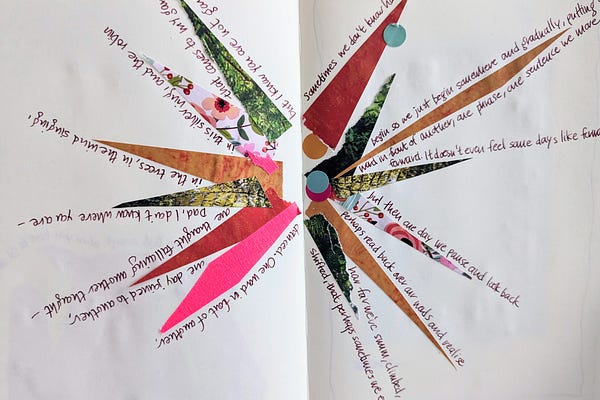 sometimes we don't know h
begin so we just begin somewhere and gradually, putting
word in front of another, one phrase, one sentence we move
forward. It doesn't even feel some days like
but then one day we pause and look back
perhaps read back over our words and realise
how far we've swum, climbed,
shifted, that perhaps sometimes we
danced. One word in front of another,
one day joined to another
one thought following another thought –
Dad, I don't know where you are –
in the trees, in the wind singing,
in this silver ring, and the robin
that comes to my
but I know you are not